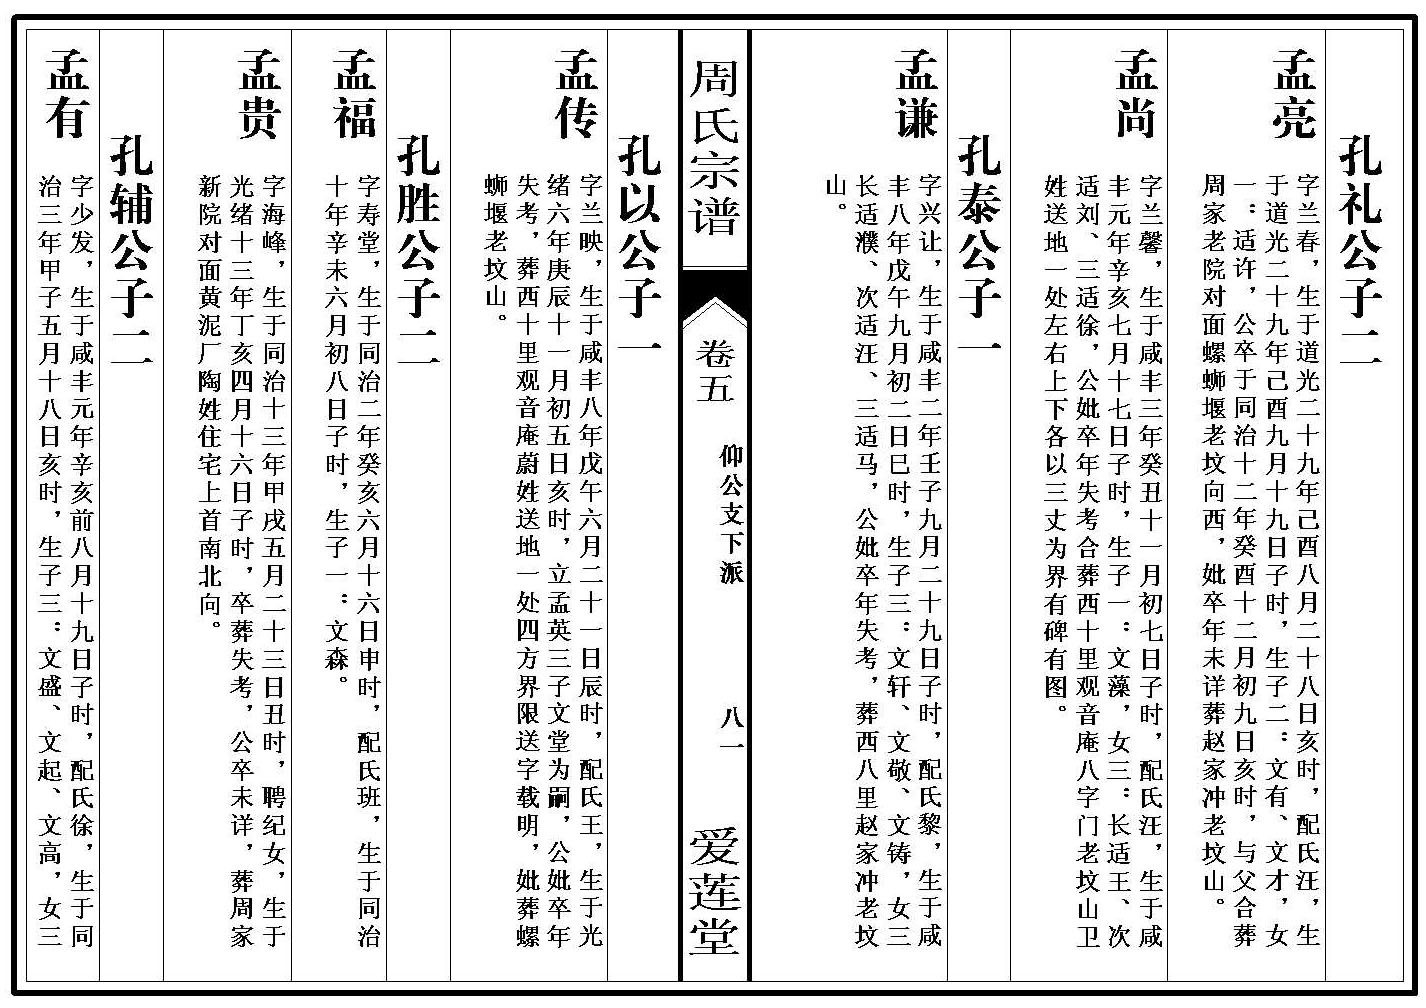 孔礼公子二
孟亮
字兰春，生于道光二十九年己酉八月二十八日亥时，配氏汪，生
于道光二十九年己酉九月十九日子时，生子二：文有、文才，女
一：适许，公卒于同治十二年癸酉十二月初九日亥时，与父合葬
周家老院对面螺蛳堰老坟向西，妣卒年未详葬赵家冲老坟山。
孟尚
字兰馨，生于咸丰三年癸丑十一月初七日子时，配氏汪，生于咸
丰元年辛亥七月十七日子时，生子一：文藻，女三：长适王、次
适刘、三适徐，公妣卒年失考合葬西十里观音庵八字门老坟山卫
姓送地一处左右上下各以三丈为界有碑有图。
孔泰公子一
孟谦
字兴让，生于咸丰二年壬子九月二十九日子时，配氏黎，生于咸
丰八年戊午九月初二日巳时，生子三：文轩、文敬、文铸，女三
长适濮、次适汪、三适马，公妣卒年失考，葬西八里赵家冲老坟
山。
周氏宗谱
卷五
仰公支下派
八一
爱莲堂
孔以公子一
孟传
字兰映，生于咸丰八年戊午六月二十一日辰时，配氏王，生于光
绪六年庚辰十一月初五日亥时，立孟英三子文堂为嗣，公妣卒年
失考，葬西十里观音庵蔚姓送地一处四方界限送字载明，妣葬螺
蛳堰老坟山。
孔胜公子二
孟福
字寿堂，生于同治二年癸亥六月十六日申时，配氏班，生于同治
十年辛未六月初八日子时，生子一：文森。
孟贵
字海峰，生于同治十三年甲戌五月二十三日丑时，聘纪女，生于
光绪十三年丁亥四月十六日子时，卒葬失考，公卒未详，葬周家
新院对面黄泥厂陶姓住宅上首南北向。
孔辅公子二
孟有
字少发，生于咸丰元年辛亥前八月十九日子时，配氏徐，生于同
治三年甲子五月十八日亥时，生子三：文盛、文起、文高，女三